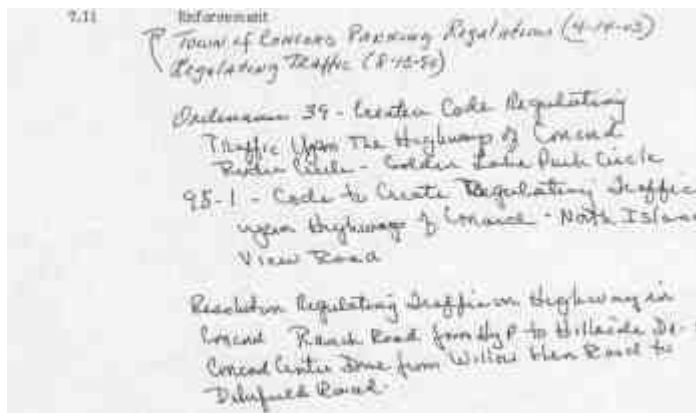 7.11 Enforcement
Town of Concord Parking Regulations (4-14-03)
Regulating Traffic (8-13-90)
Ordinance 39 - Creates Code Regulating
Traffic Upon The Highways of Concord
Circle - Golden Lake Park Circle
95-1 - Code to Create Regulating Traffic
upon Highways of Concord - North Island
View Road
Resolution Regulating Traffic on Highway in
Concord Ranch Road from Hy P to Hillside Dr.
Concord Center Drive from Willow Glen Road to
Road.